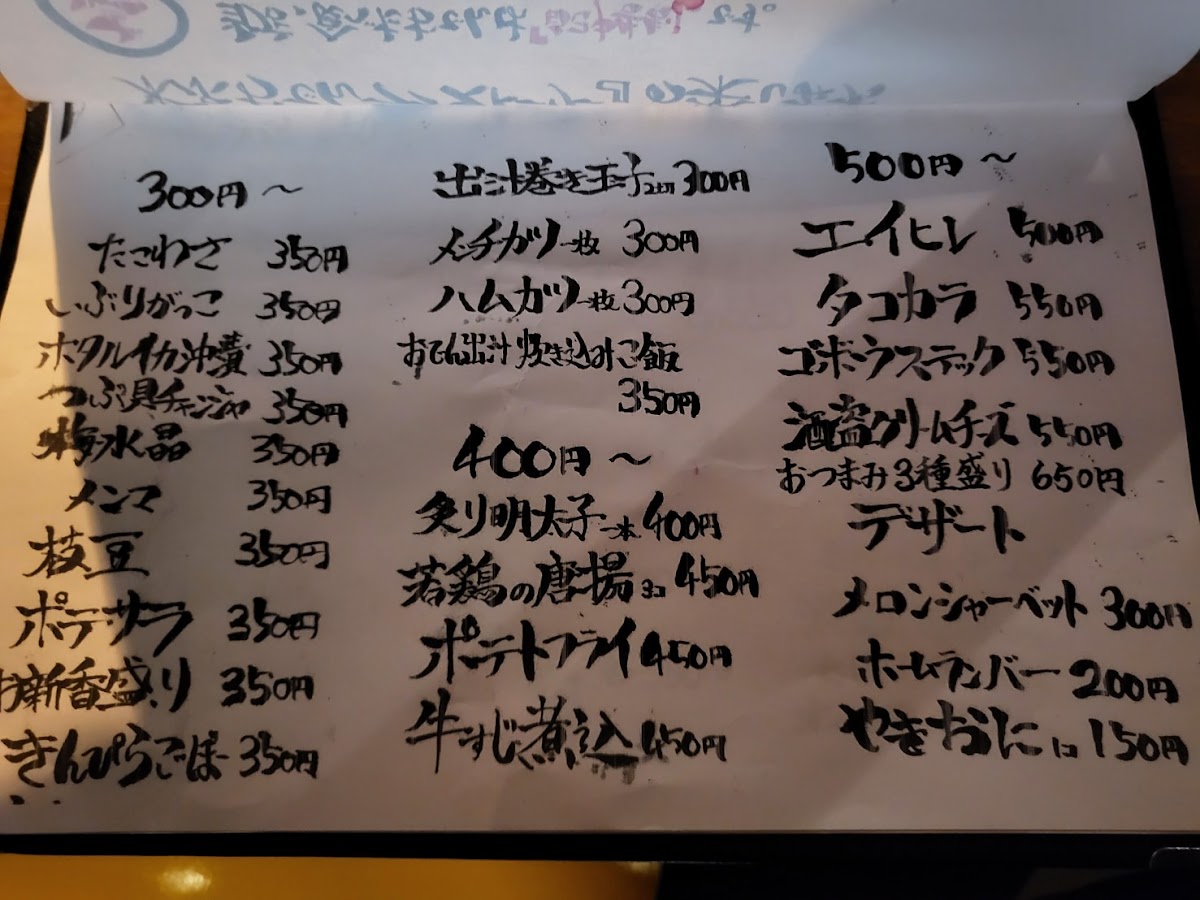 300円〜
たこわさ 350円
いぶりがっこ 350円
ホタルイカ沖漬 350円
つぶ貝チャンジャ 350円
梅水晶 350円
メンマ 350円
枝豆 350円
ポテサラ 350円
お新香盛り 350円
きんぴらごぼ 350円
出汁巻き玉子2切 300円
メンチカツ一枚 300円
ハムカツ一枚 300円
おでん出汁炊き込みご飯
350円
400円〜
炙り明太子一本 400円
若鶏の唐揚3コ 450円
ポテトフライ 450円
牛すじ煮込 450円
500円〜
エイヒレ 500円
タコカラ 550円
ゴボウスティック 550円
酒盗クリームチーズ 550円
おつまみ3種盛り 650円
デザート
メロンシャーベット 300円
ホームランバー 200円
やきおに1コ 150円